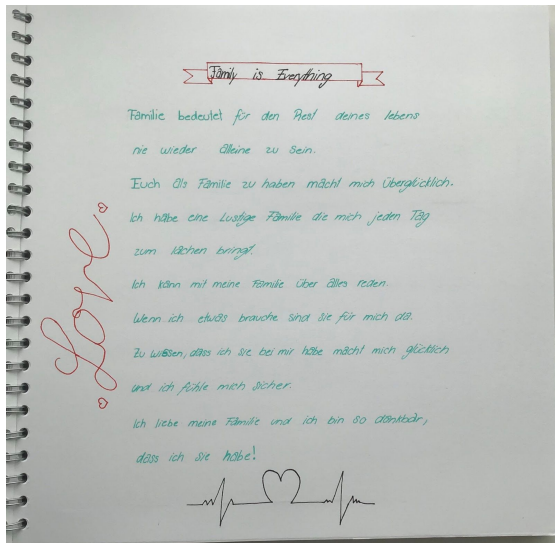 Family is Everything
Familie bedeutet für den Rest deines lebens
nie wieder alleine zu sein.
Euch als Familie zu haben macht mich überglücklich.
Ich habe eine lustige Familie die mich jeden Tag
zum lachen bringt.
Ich kann mit meine Familie über alles reden.
Wenn ich etwas brauche sind sie für mich da.
Zu wissen, dass ich sie bei mir habe macht mich glücklich
und ich fühle mich sicher.
Ich liebe meine Familie und ich bin so dankbar,
dass ich sie habe!
Love